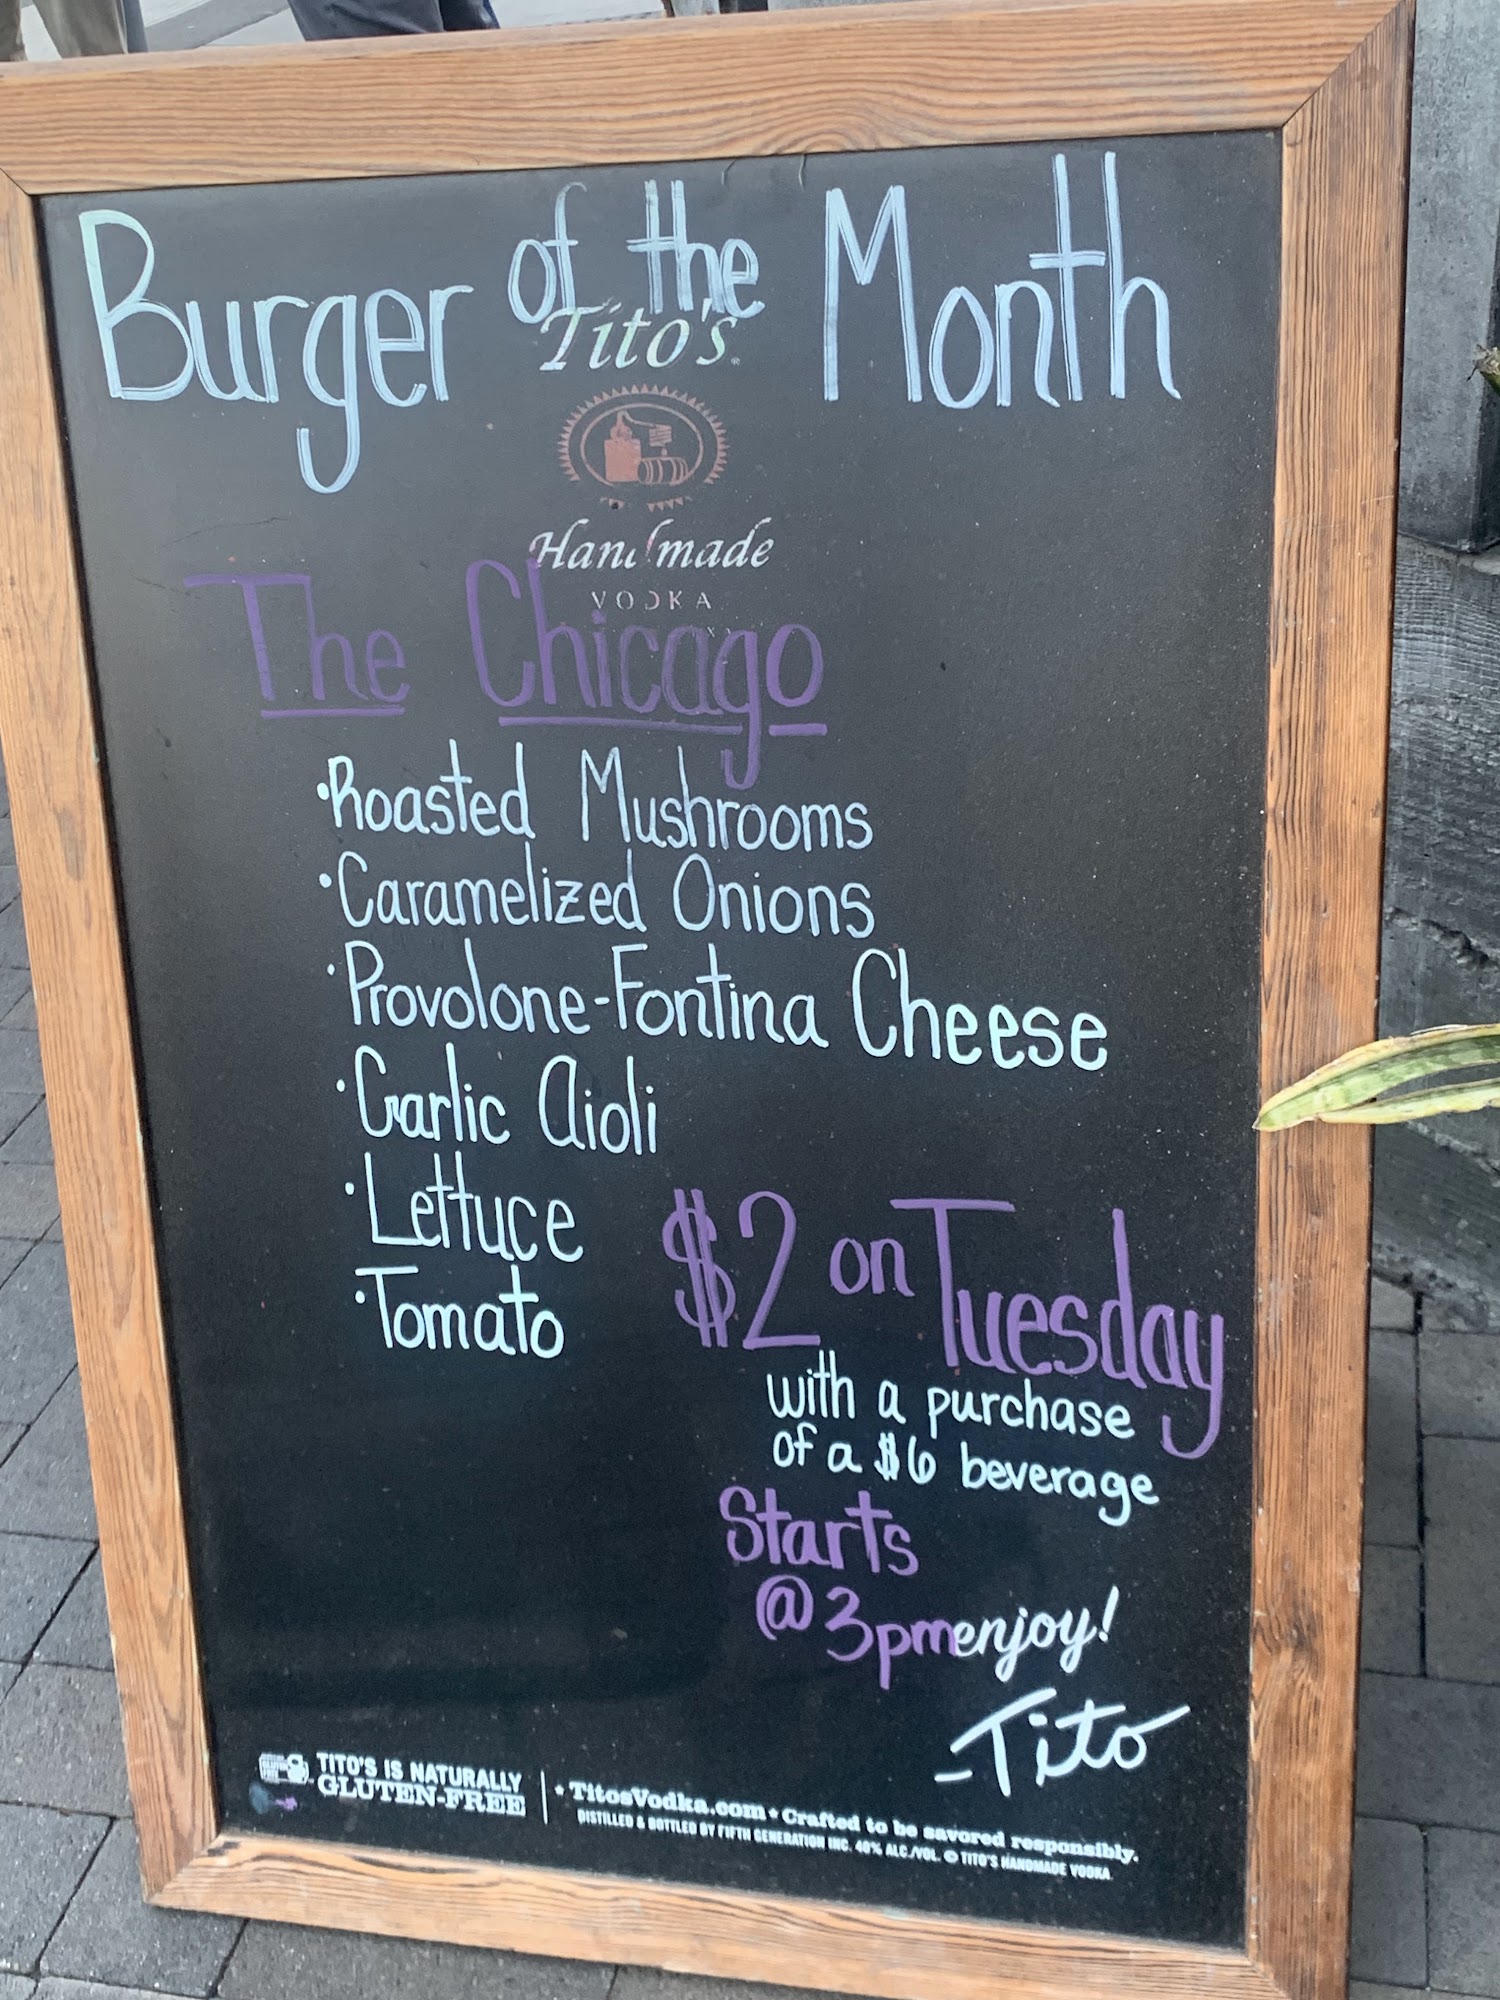 Burger of the Month
Tito's
Handmade
VODKA
The Chicago
·Roasted Mushrooms
·Caramelized Onions
·Provolone-Fontina Cheese
·Garlic Aioli
·Lettuce
·Tomato
$2 on Tuesday
with a purchase
of a $6 beverage
Starts
@ 3pm
enjoy!
-Tito
TITO'S IS NATURALLY
GLUTEN-FREE
* TitosVodka.com * Crafted to be savored responsibly.
DISTILLED & BOTTLED BY FIFTH GENERATION INC. 40% ALC./VOL. © TITO'S HANDMADE VODKA.